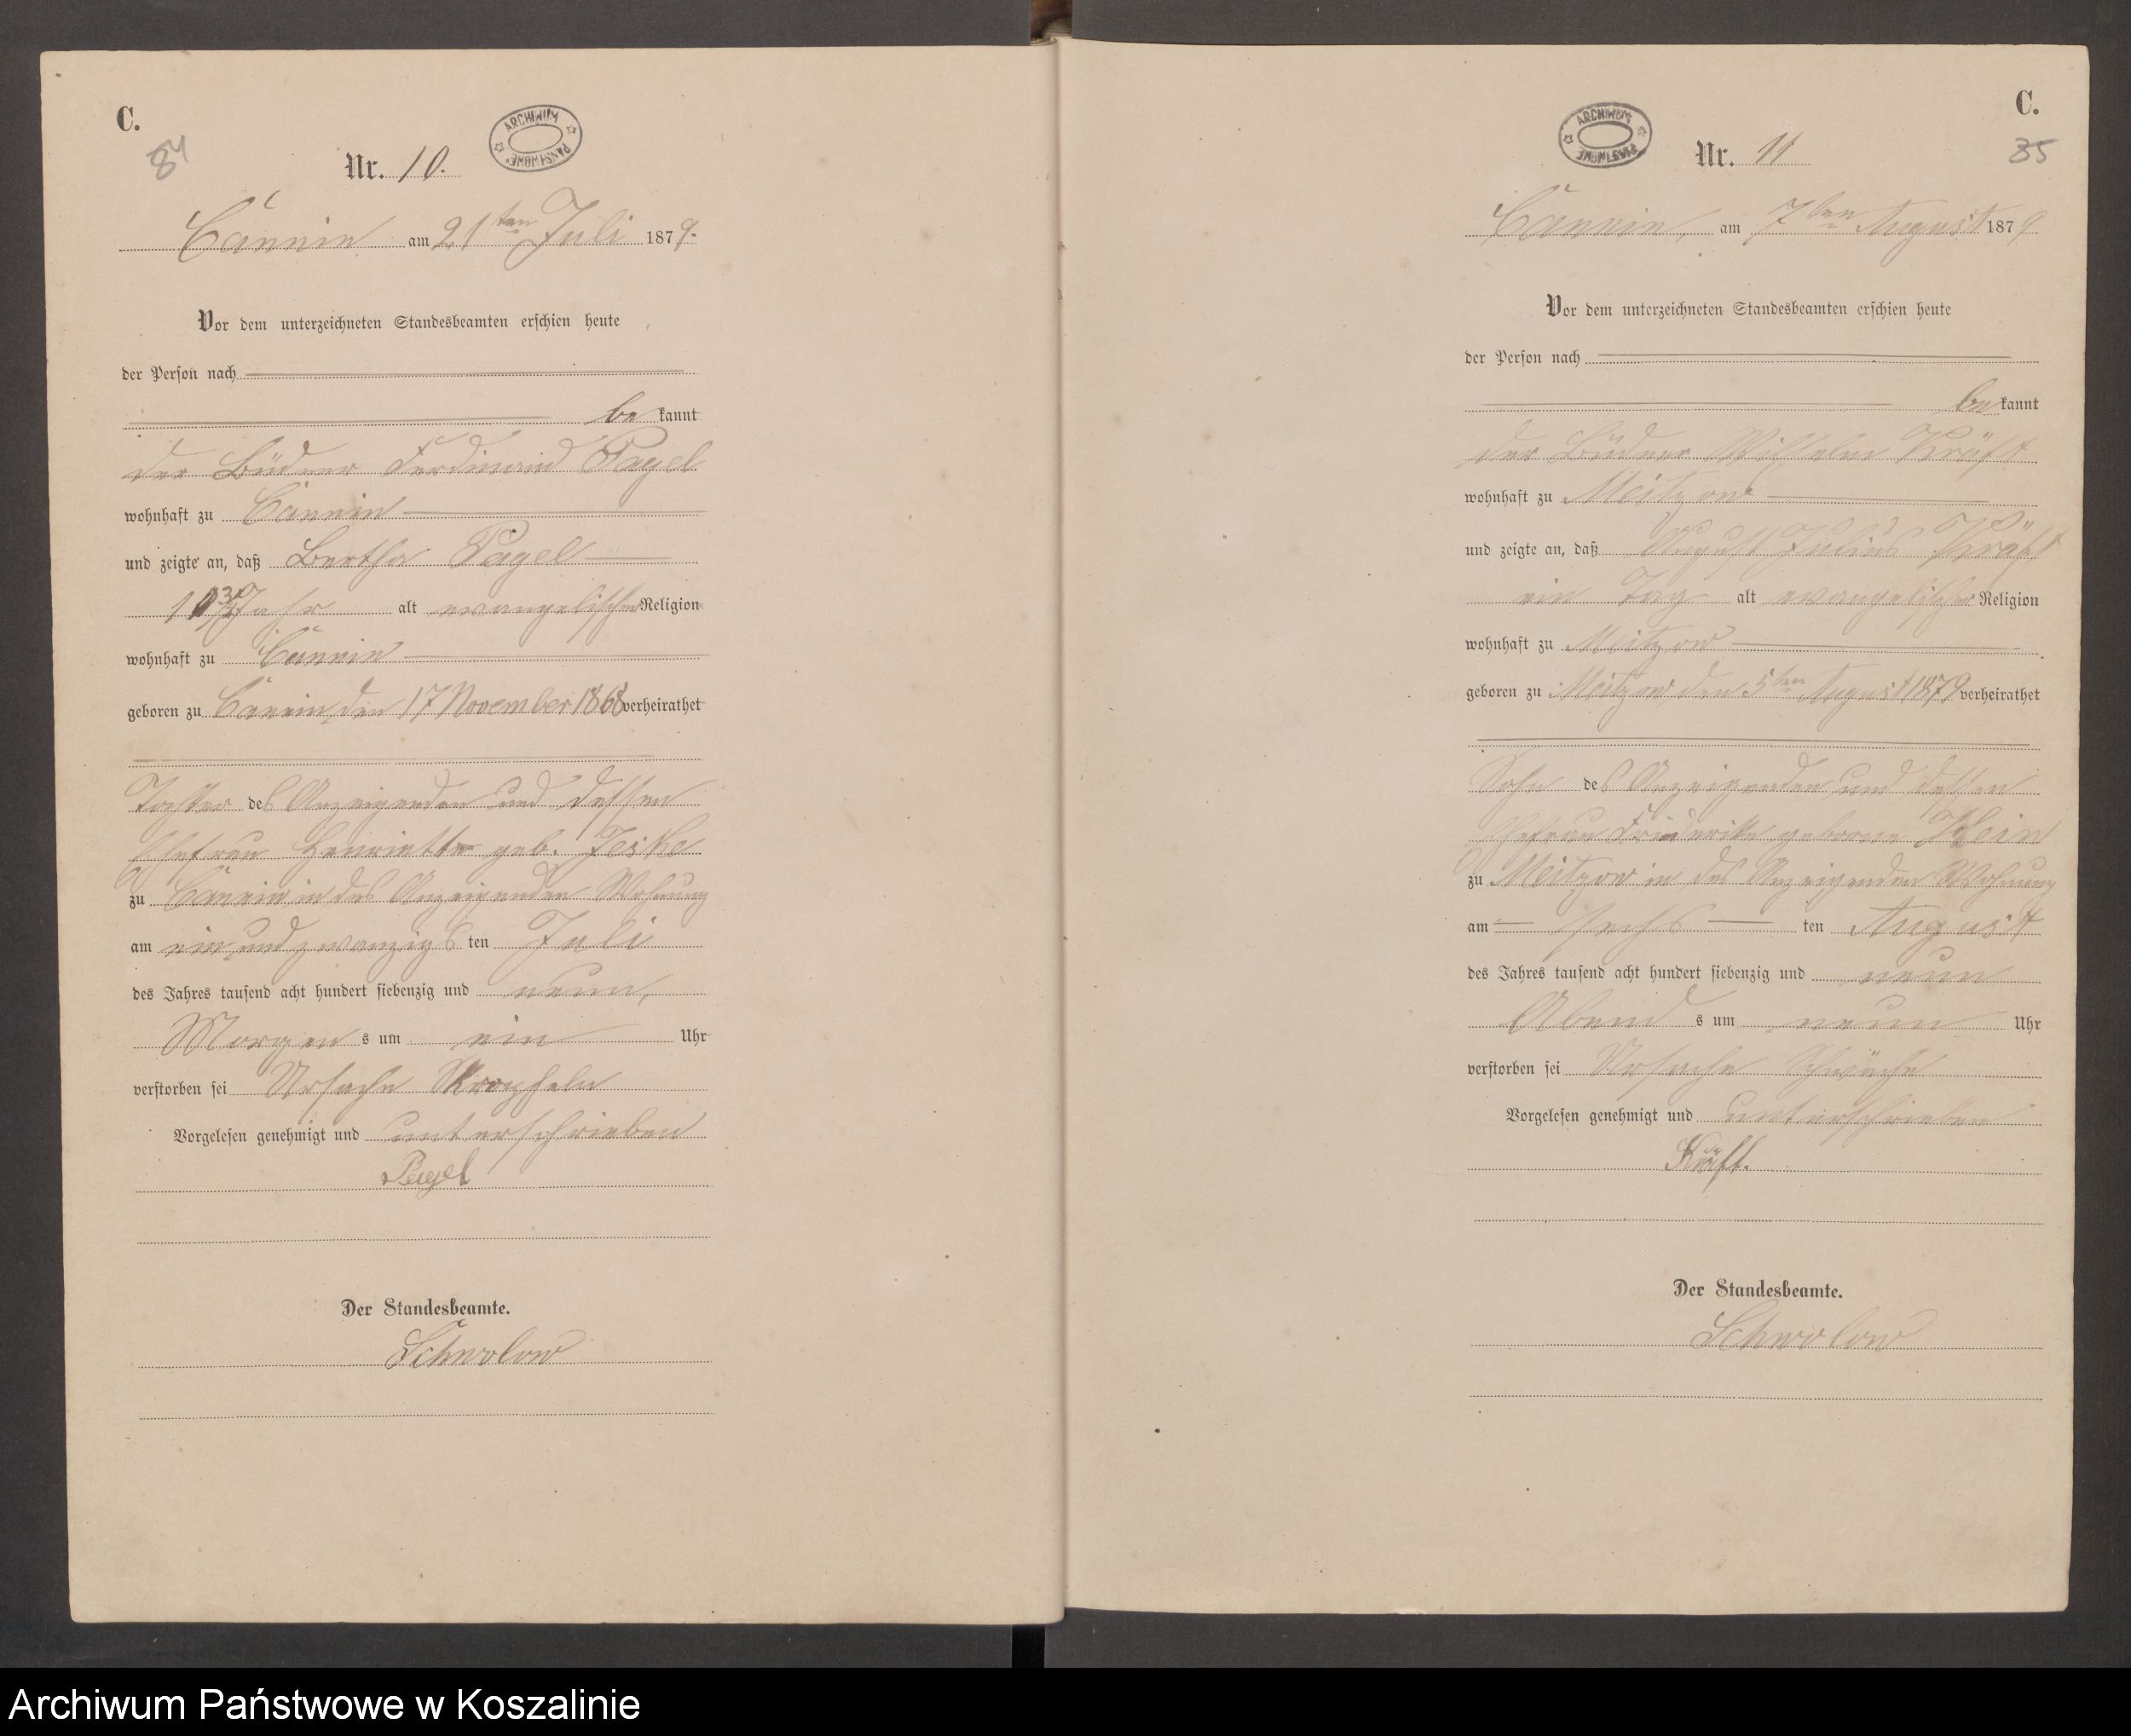 C.
84
Nr. 10.
ARCHIWUM PAŃSTWOWE
Cannin am 21ten Juli 1879.
Vor dem unterzeichneten Standesbeamten erschien heute
der Person nach
be kannt
der Büdner Ferdinand Pagel
wohnhaft zu Cannin
und zeigte an, daß Bertha Pagel
Jahr alt evangelischer Religion
wohnhaft zu Cannin
geboren zu Cannin den 17 November 1868 verheirathet
Tochter des Anzeigenden und dessen
Ehefrau Henriette geb. Jeske
zu Cannin in des Anzeigenden Wohnung
am ein und zwanzigs ten Juli
des Jahres tausend acht hundert siebenzig und neun,
Morgen s um ein Uhr
verstorben sei Ursache Skropheln
Vorgelesen genehmigt und unterschrieben
Pagel
Der Standesbeamte.
Schwolow
C.
35
Nr. 11
ARCHIWUM PAŃSTWOWE
Cannin, am 7ten August 1879
Vor dem unterzeichneten Standesbeamten erschien heute
der Person nach
be kannt
der Büdner Wilhelm Kräft
wohnhaft zu Meitzow
und zeigte an, daß August Julius Kräft
ein Tag alt evangelischer Religion
wohnhaft zu Meitzow
geboren zu Meitzow den 5ten August 1879 verheirathet
Sohn des Anzeigenden und dessen
Ehefrau Friederike geborne Klein
zu Meitzow in des Anzeigenden Wohnung
am sechs ten August
des Jahres tausend acht hundert siebenzig und neun
Abend s um neun Uhr
verstorben sei Ursache Schwäche
Vorgelesen genehmigt und unterschrieben
Kräft.
Der Standesbeamte.
Schwolow
Archiwum Państwowe w Koszalinie